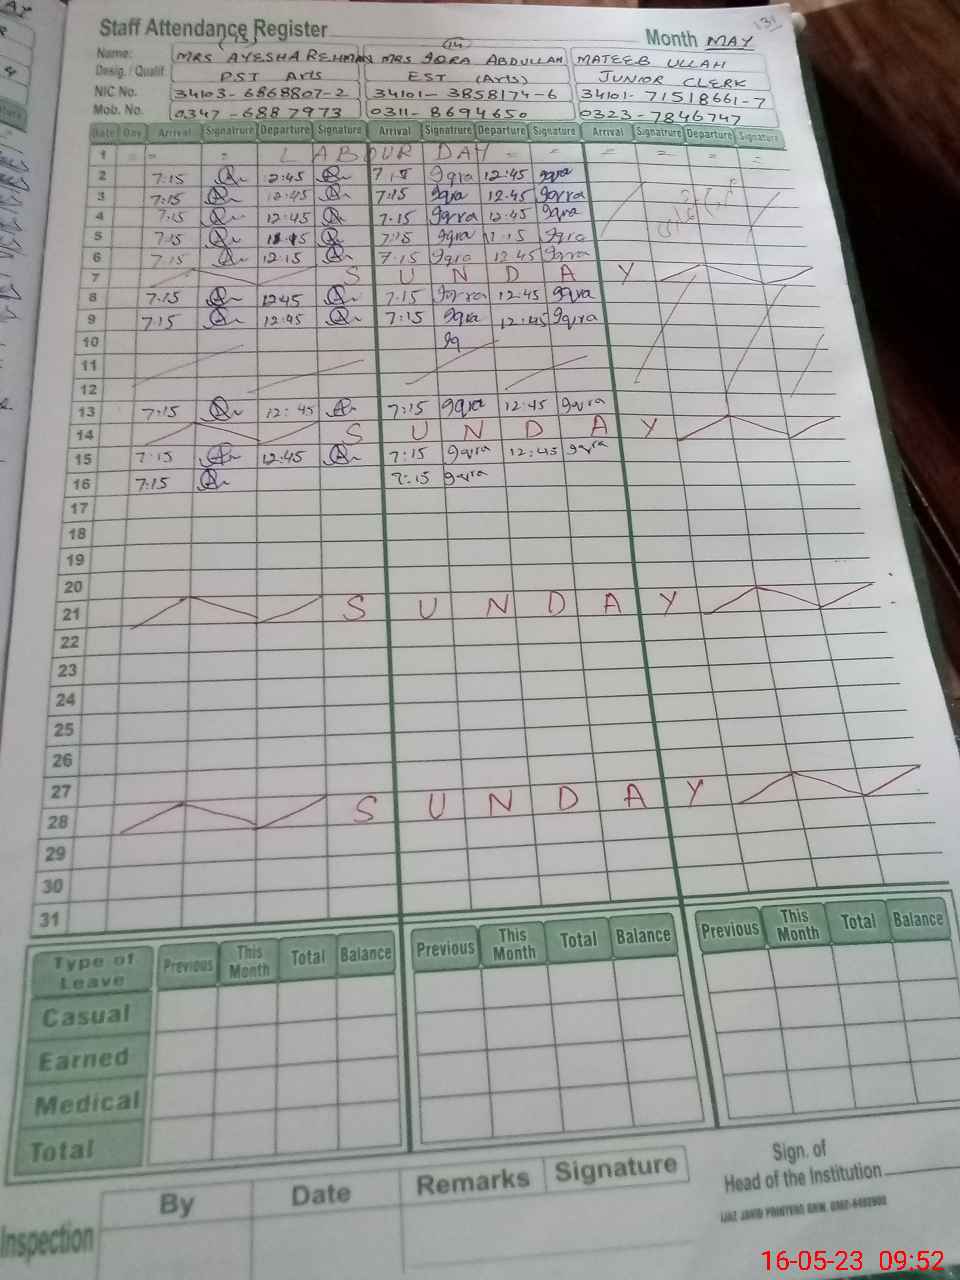 131
Staff Attendance Register Month MAY
(13) (14)
Name: MRS AYESHA REHMAN MRS IQRA ABDULLAH MATEEB ULLAH
Desig. / Qualif. PST Arts EST (Arts) JUNIOR CLERK
NIC No. 34103-6868807-2 34101-3858174-6 34101-71518661-7
Mob. No. 0347-6887973 0311-8694650 0323-7846747
Date Day Arrival Signatrure Departure Signature Arrival Signatrure Departure Signature Arrival Signatrure Departure Signature
1 LABOUR DAY
2 7:15 12:45 7:15 Iqra 12:45 Iqra
3 7:15 12:45 7:15 Iqra 12:45 Iqrra
4 7:15 12:45 7:15 Iqrra 12:45 Iqra
5 7:15 7:15 Iqra Iqra
6 7:15 12:15 7:15 Iqra 12:45 Iqra
7 SUNDAY
8 7:15 12:45 7:15 Iqrra 12:45 Iqra
9 7:15 12:45 7:15 Iqra 12:45 Iqra
10 Iq
11
12
13 7:15 12:45 7:15 Iqra 12:45 Iqrra
14 SUNDAY
15 7:15 12:45 7:15 Iqra 12:45 Iqra
16 7:15 7:15 Iqra
17
18
19
20
21 SUNDAY
22
23
24
25
26
27
28 SUNDAY
29
30
31
Type of Leave Previous This Month Total Balance Previous This Month Total Balance Previous This Month Total Balance
Casual
Earned
Medical
Total
Inspection By Date Remarks Signature
Sign. of
Head of the Institution
16-05-23 09:52